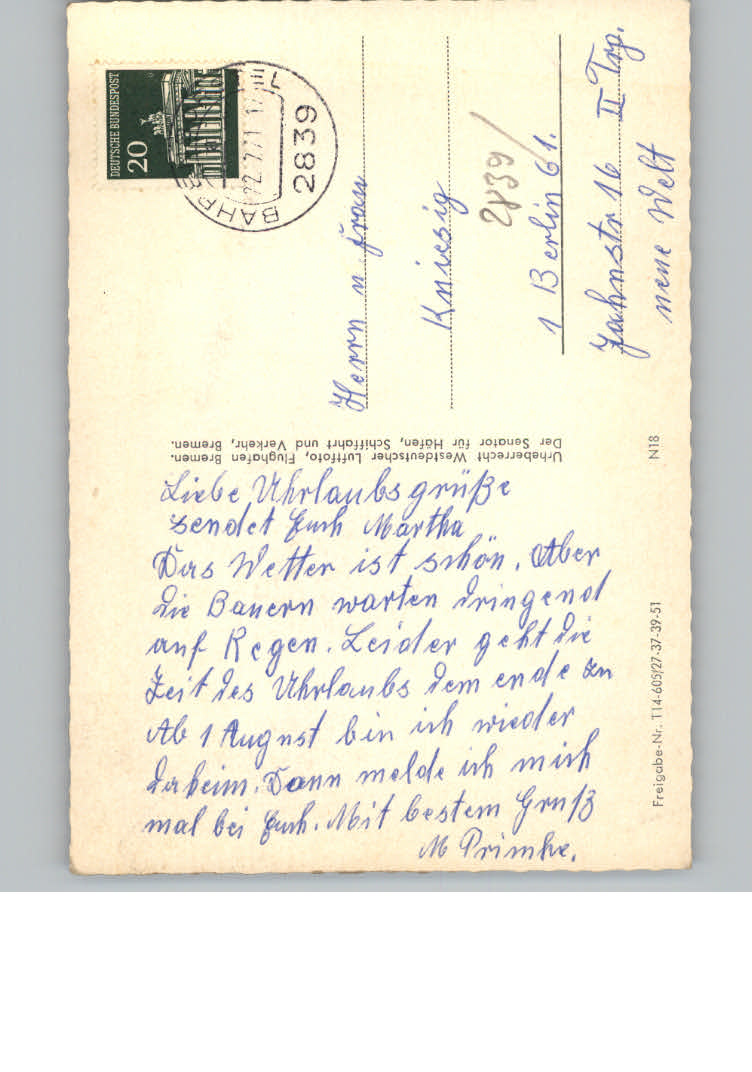 Liebe Uhrlaubsgrüße
sendet Euch Martha
Das Wetter ist schön. Aber
die Bauern warten dringend
auf Regen. Leider geht die
Zeit des Uhrlaubs dem ende zu
Ab 1 August bin ich wieder
daheim. Dann melde ich mich
mal bei Euch. Mit bestem Gruß
M Primke.
Urheberrecht Westdeutscher Luftfoto, Flughafen Bremen.
Der Senator für Häfen, Schiffahrt und Verkehr, Bremen.
Freigabe-Nr. T14-605/27-37-39-51
N18
DEUTSCHE BUNDESPOST
20
2839
22.7.71
Herrn u Frau
Kniesig
2839/
1 Berlin 61.
Jahnstr 16 II Trp.
neue Welt